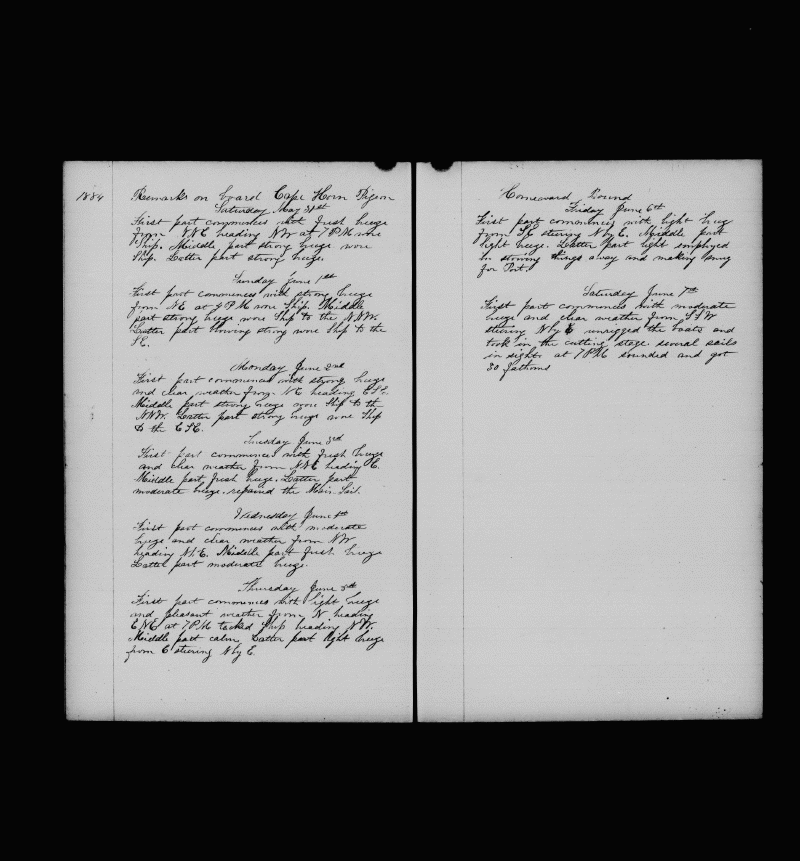 1884
Remarks on board Cape Horn Pigeon
Saturday May 31st
First part commences with fresh breeze
from NNE heading NW at 7 PM wore
Ship. Middle part strong breeze wore
Ship. Latter part strong breeze.
Sunday June 1st
First part commences with strong breeze
from NE at 9 PM wore Ship. Middle
part strong breeze wore Ship to the NNW.
Latter part blowing strong wore Ship to the
SE.
Monday June 2nd
First part commences with strong breeze
and clear weather from NE heading ESE.
Middle part strong breeze wore Ship to the
NNW. Latter part strong breeze wore Ship
to the ESE.
Tuesday June 3rd
First part commences with fresh breeze
and clear weather from NNE heading E.
Middle part fresh breeze. Latter part
moderate breeze. repaired the Main Sail.
Wednesday June 4th
First part commences with moderate
breeze and clear weather from NW
heading NE. Middle part fresh breeze
Latter part moderate breeze.
Thursday June 5th
First part commences with light breeze
and pleasant weather from N heading
ENE at 7 PM tacked Ship heading NW.
Middle part calm. Latter part light breeze
from E steering N by E.
Homeward Bound
Friday June 6th
First part commences with light breeze
from SE steering N by E. Middle part
light breeze. Latter part light employed
in stowing things away and making snug
for Port.
Saturday June 7th
First part commences with moderate
breeze and clear weather from SSW
steering N by E unrigged the boats and
took in the cutting stage several sails
in sight. at 7 PM sounded and got
30 fathoms